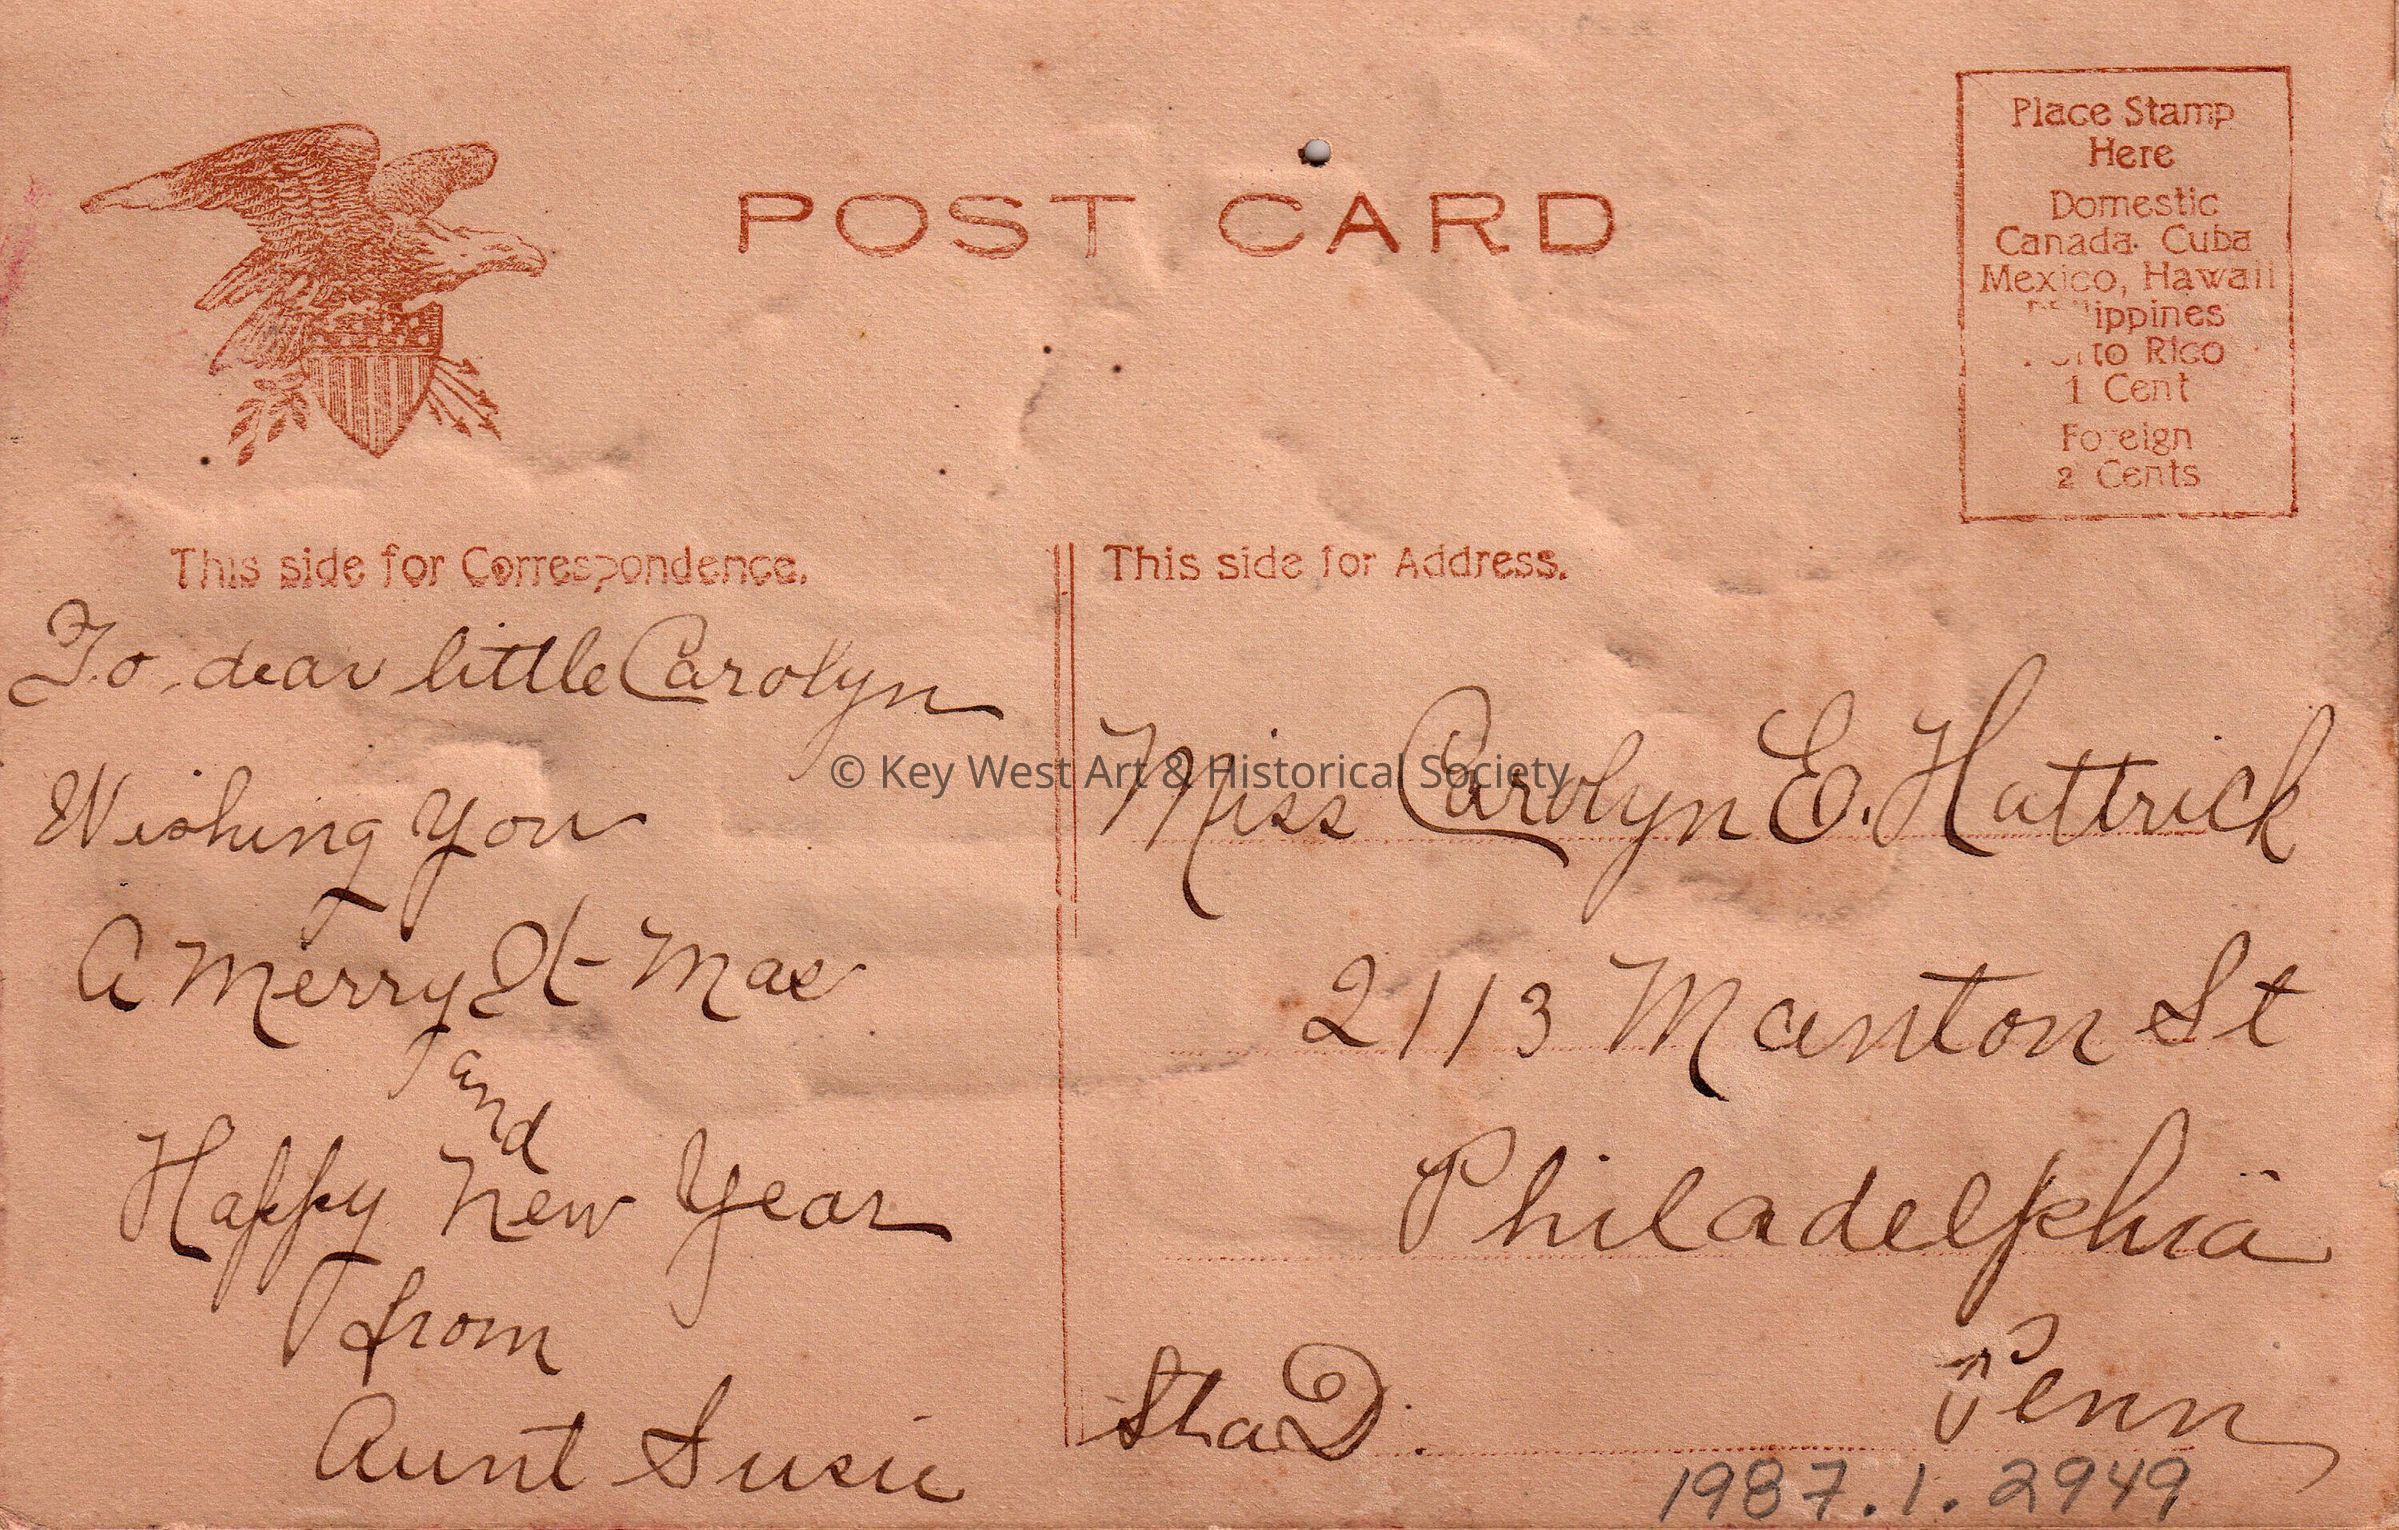 POST CARD
Place Stamp
Here
Domestic
Canada. Cuba
Mexico, Hawaii
Philippines
Porto Rico
1 Cent
Foreign
2 Cents
This side for Correspondence.
To dear little Carolyn
Wishing You
A Merry Xt-Mas
and
Happy New Year
from
Aunt Susie
This side for Address.
Miss Carolyn E. Hattrick
2113 Manton St
Philadelphia
Sta D. Penn
1987.1.2949
© Key West Art & Historical Society